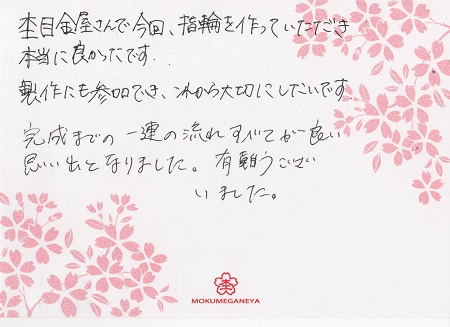 杢目金屋さんで今回、指輪を作っていただき
本当に良かったです.
製作にも参加でき、これから大切にしたいです.
完成までの一連の流れすべてが良い
思い出となりました。有難うござい
いました。
MOKUMEGANEYA